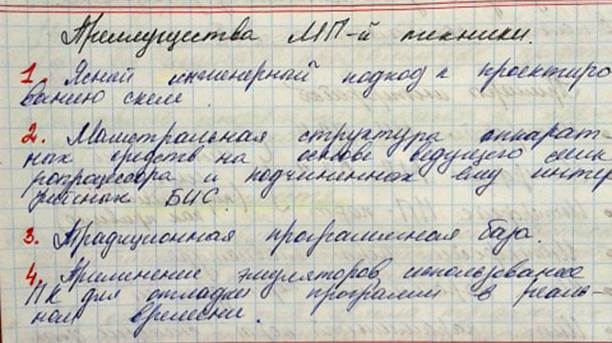 Преимущества МП-й техники.
1. Ясный инженерный подход к проектиро
ванию схем.
2. Магистральная структура аппарат
ных средств на основе ведущего мик
ропроцессора и подчиненных ему интер
фейсных БИС.
3. Традиционная программная база.
4. Применение эмуляторов использование
ПК для отладки программ в реаль-
ном времени.